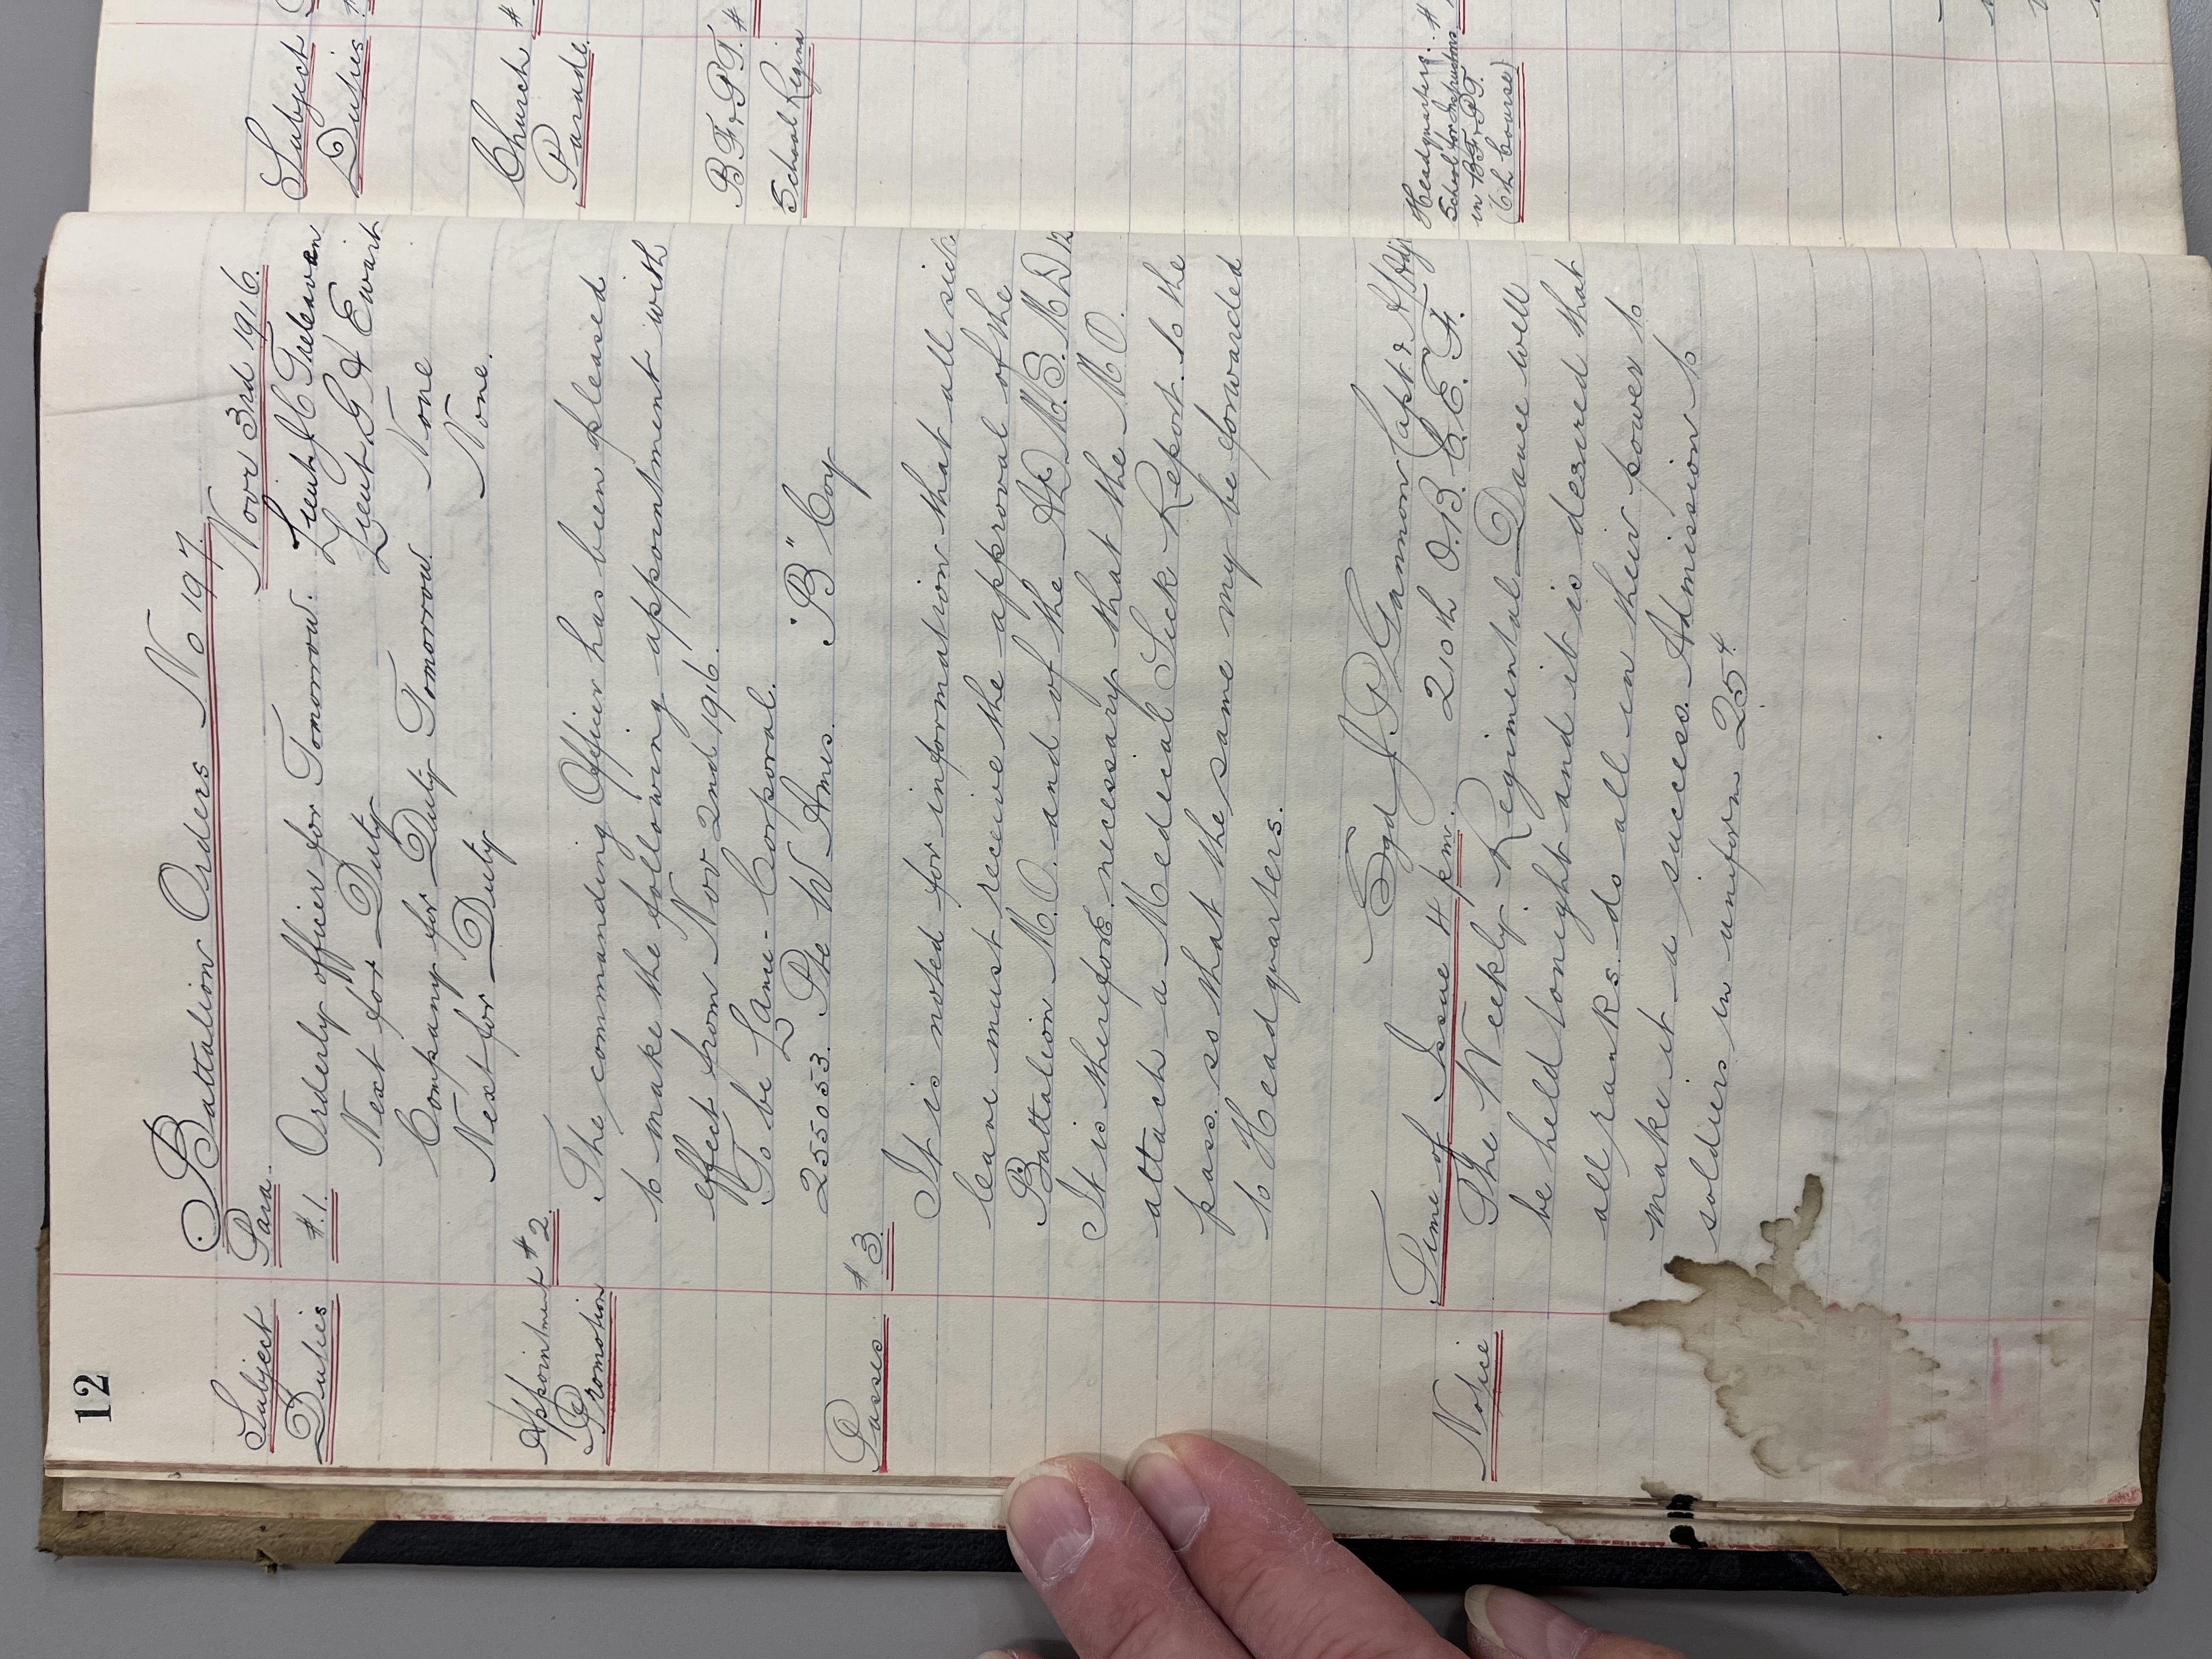 12
Battalion Orders No 197.
Subject Para. Novr 3rd 1916.
Duties #.1. Orderly officer for Tomorrow. Lieut J C Treleavan
Next for Duty Lieut G A Ewart
Company for Duty Tomorrow. None
Next for Duty None.
Appointment #2
Promotion
The commanding Officer has been pleased
to make the following appointment with
effect from Nov 2nd 1916.
To be Lance-Corporal.
255053. Pte W Ames. "B" Coy
Passes #3.
It is noted for information that all sick
leave must receive the approval of the
Battalion M.O. and of the AD M.S. M D 12
It is therefore necessary that the M.O.
attach a Medical Sick Report to the
pass so that the same my be forwarded
to Headquarters.
Sgd J. P Gannon Capt & A/Adjt
Time of Issue 4 pm. 210th O.B. C.E.F.
Notice The Weekly Regimental Dance will
be held tonight and it is desired that
all ranks do all in their power to
make it a success. Admission to
soldiers in uniform 25¢
Subject
Duties #
Church #
Parade.
B.F. & P.T. #
School Regina
Headquarters. #
School for Instructions
in B.F. & P.T.
(6th Course)